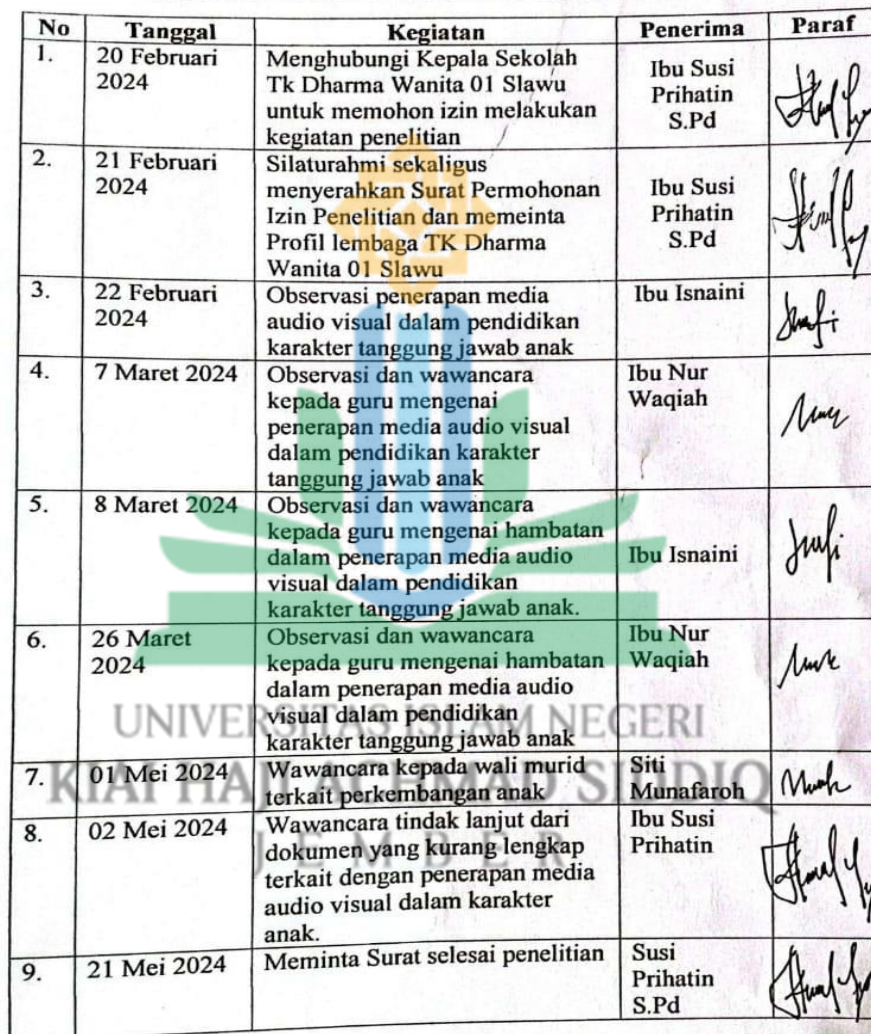 No Tanggal Kegiatan Penerima Paraf
1. 20 Februari 2024
Menghubungi Kepala Sekolah
Tk Dharma Wanita 01 Slawu
untuk memohon izin melakukan
kegiatan penelitian
Ibu Susi
Prihatin
S.Pd
2. 21 Februari 2024
Silaturahmi sekaligus
menyerahkan Surat Permohonan
Izin Penelitian dan memeinta
Profil lembaga TK Dharma
Wanita 01 Slawu
Ibu Susi
Prihatin
S.Pd
3. 22 Februari 2024
Observasi penerapan media
audio visual dalam pendidikan
karakter tanggung jawab anak
Ibu Isnaini
4. 7 Maret 2024
Observasi dan wawancara
kepada guru mengenai
penerapan media audio visual
dalam pendidikan karakter
tanggung jawab anak
Ibu Nur
Waqiah
5. 8 Maret 2024
Observasi dan wawancara
kepada guru mengenai hambatan
dalam penerapan media audio
visual dalam pendidikan
karakter tanggung jawab anak.
Ibu Isnaini
6. 26 Maret 2024
Observasi dan wawancara
kepada guru mengenai hambatan
dalam penerapan media audio
visual dalam pendidikan
karakter tanggung jawab anak
Ibu Nur
Waqiah
7. 01 Mei 2024
Wawancara kepada wali murid
terkait perkembangan anak
Siti
Munafaroh
8. 02 Mei 2024
Wawancara tindak lanjut dari
dokumen yang kurang lengkap
terkait dengan penerapan media
audio visual dalam karakter
anak.
Ibu Susi
Prihatin
9. 21 Mei 2024
Meminta Surat selesai penelitian
Susi
Prihatin
S.Pd
UNIVERSITAS ISLAM NEGERI
KIAI HAJI ACHMAD SIDDIQ
JEMBER